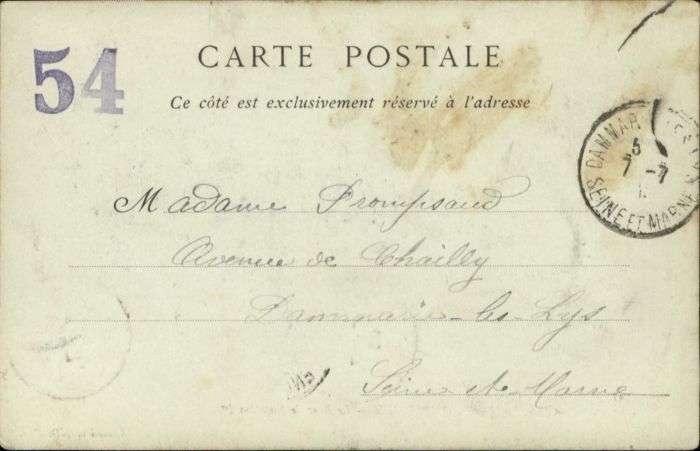 54
CARTE POSTALE
Ce côté est exclusivement réservé à l'adresse
DAMMAR
5
7 -7
SEINE ET MARNE
Madame Prompsaud
Avenue de Chailly
Dammarie-les-Lys
Seine et Marne